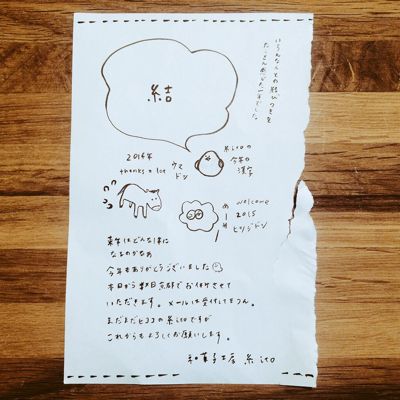 いろんな人との結びつきを
たくさん感じた一年でした。
結
Kitoの
今年の
漢字
2014年
thanks a lot
ウマ
ドシ
welcome
2015
ヒツジドシ
めーけ
来年はどんな1年に
なるのかなぁ
今年もありがとうございました
本日から数日京都でお休みさせて
いただきます。メールは受付してます。
まだまだヒヨコの糸itoですが
これからもよろしくお願いします。
和菓子工房 糸ito